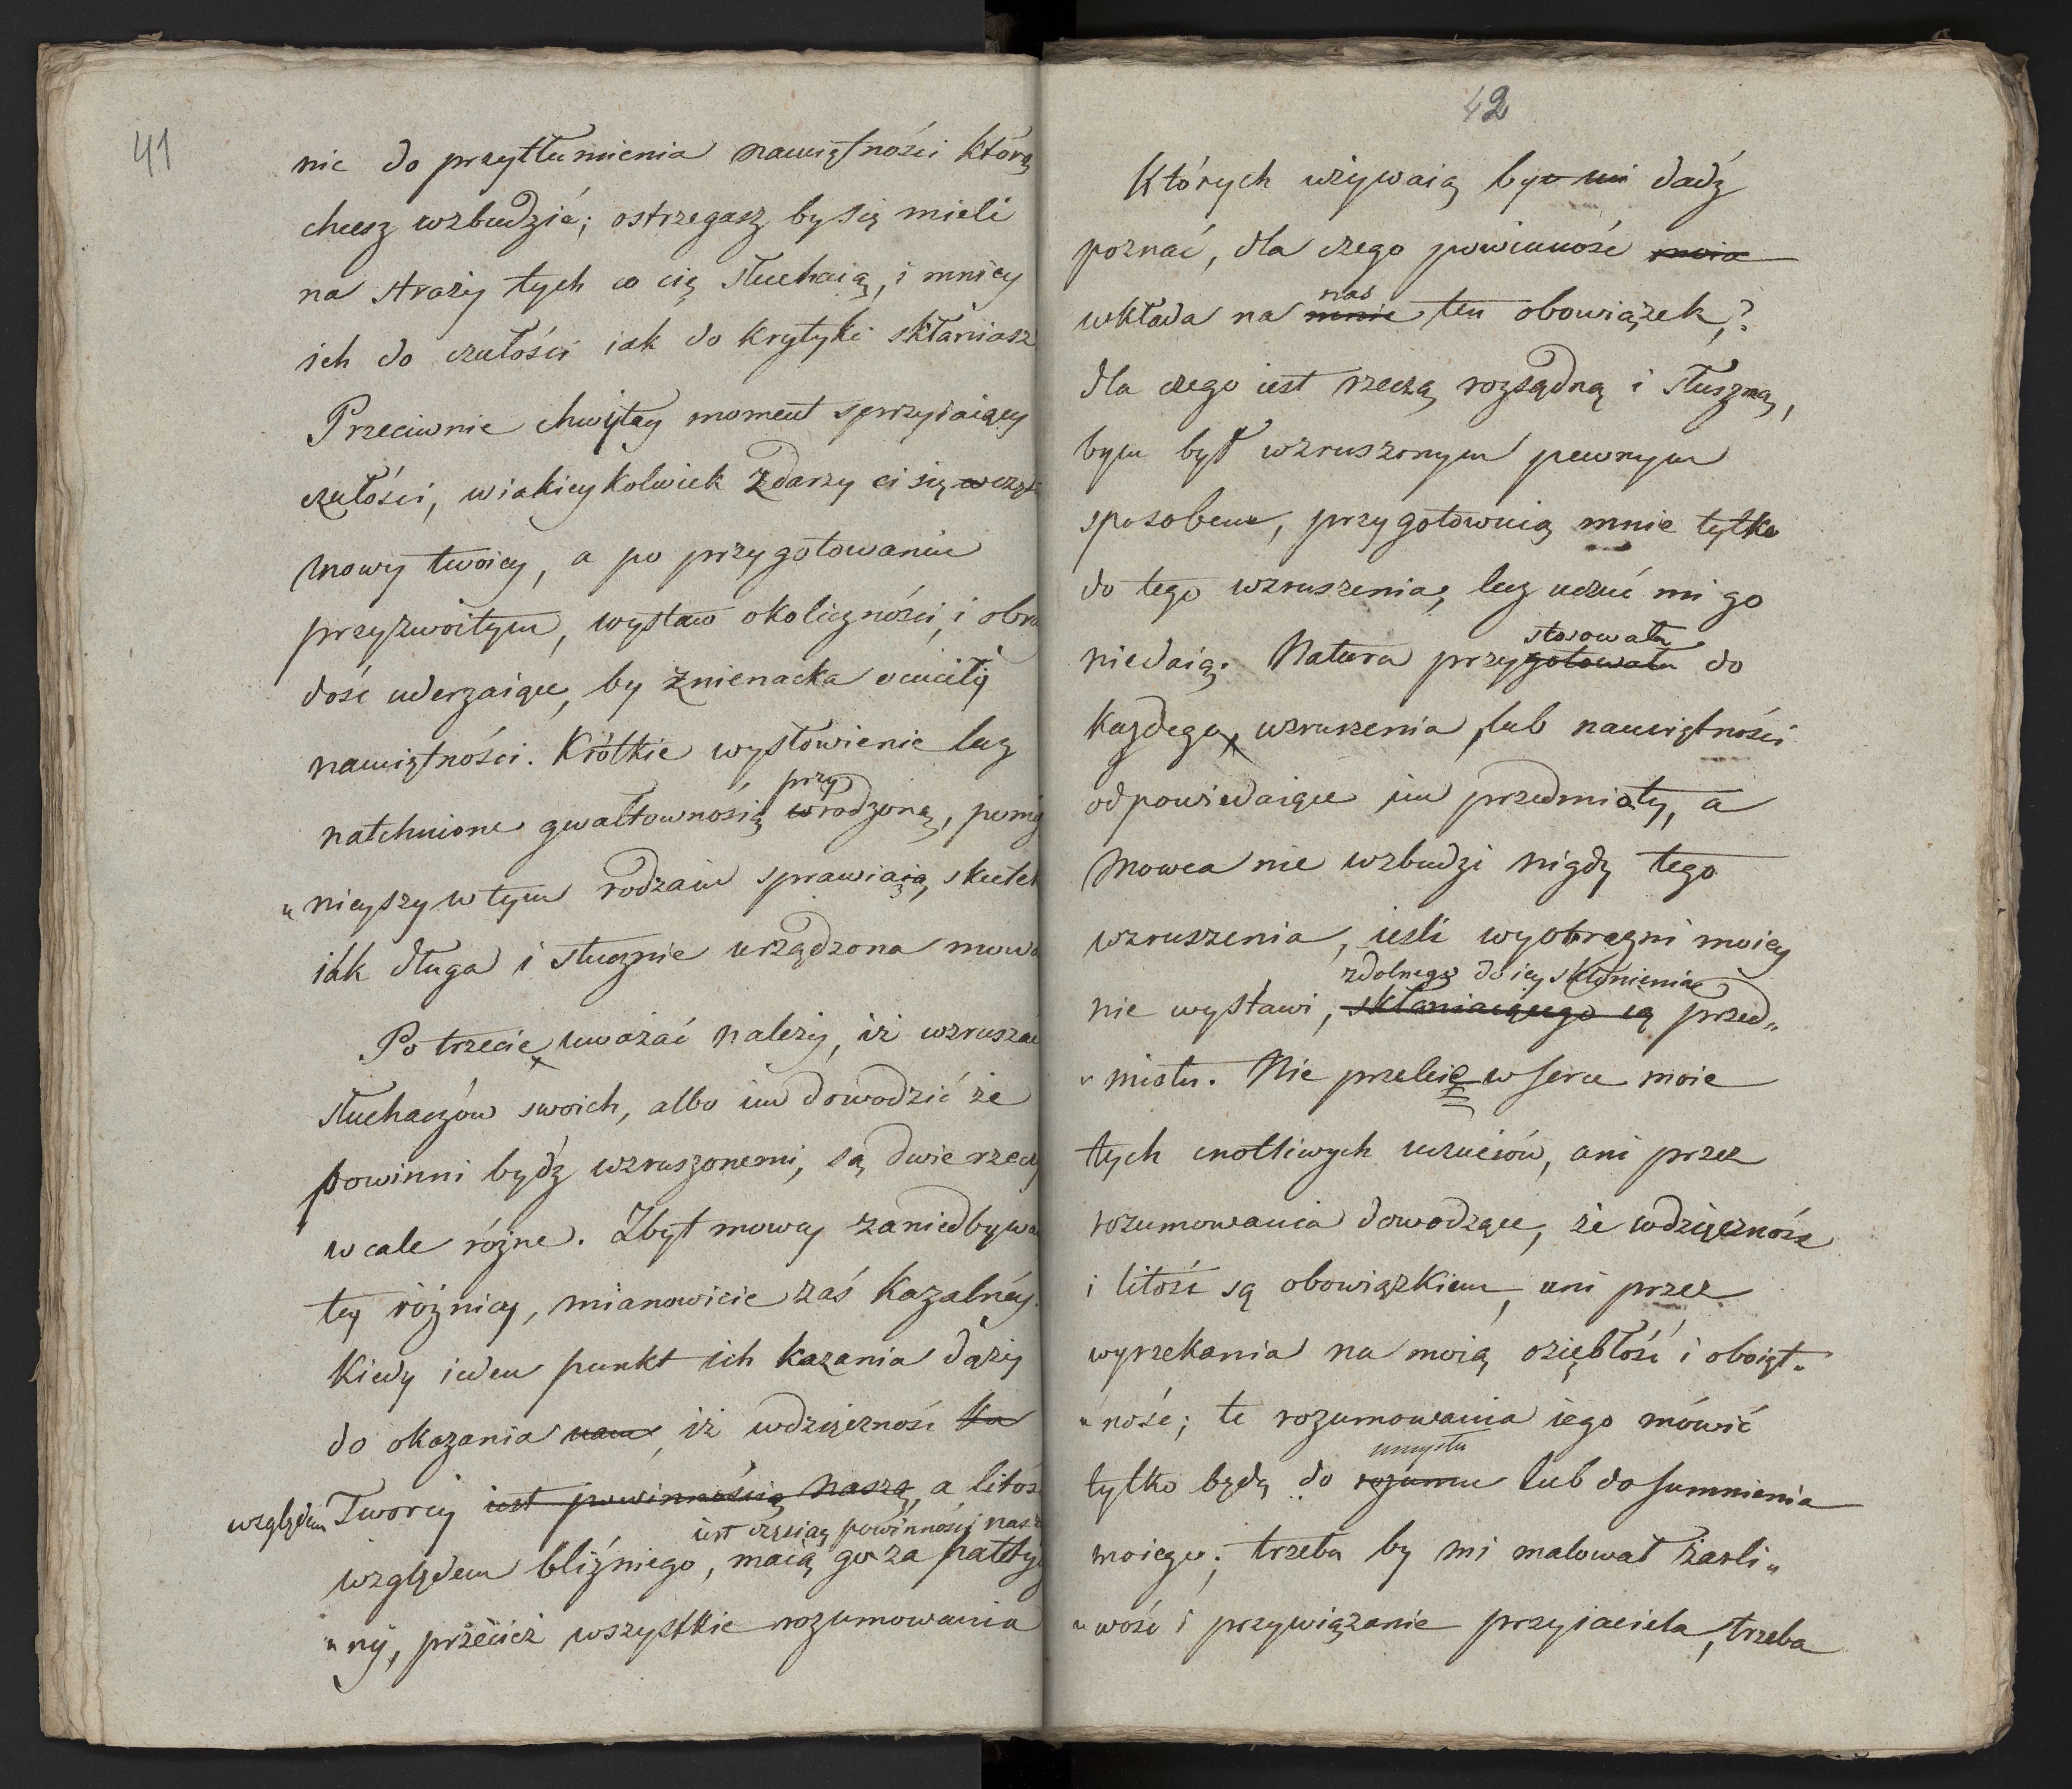 41
nie do przytłumienia namiętności którą
chcesz wzbudzić; ostrzegasz by się mieli
na straży tych co cię słuchaią, i mniey
ich do czułości iak do krytyki skłaniasz
Przeciwnie chwytay moment sprzyiaiący
czułości, w iakieykolwiek zdarzy ci się
mowy twoiey, a po przygotowaniu
przyzwoitym, wystaw okoliczności, i obra
dość uderzaiące, by znienacka ocuciły
namiętności. Krótkie wysłowienie lecz
przy
natchnione gwałtownością wrodzoną, pomy
„ nieyszy w tym rodzaiu sprawiaią, skutek
iak długa i sztucznie urządzona mowa
Po trzecie uważać należy, iż wzruszać
słuchaczów swoich, albo im dowodzić że
powinni bydź wzruszonemi, są dwie rzeczy
wcale różne. Zbyt mowcy zaniedbywa
tey różnicy, mianowicie zaś kazalney.
Kiedy ieden punkt ich kazania dąży
do okazania nam, iż wdzięczność ku
względem Tworcy iest powinnością naszą, a litość
iest częścią powinności nasz
względem bliźniego, maią go za patety
„ ny, przecież wszystkie rozumowania
42
Których używaią by mi dadź
poznać, dla czego powinność moia
nas
wkłada na mnie ten obowiązek,?
dla czego iest rzeczą rozsądną i słuszną,
bym był wzruszonym pewnym
sposobem, przygotowuią mnie tylko
do tego wzruszenia, lecz uczuć mi go
stosowała
niedaią. Natura przygotowała do
każdego wzruszenia, lub namiętności
odpowiedaiące im przedmioty, a
Mowca nie wzbudzi nigdy tego
wzruszenia, ieśli wyobraźni moiey
zdolnego do iey skłonienia
nie wystawi, skłaniaiącego ią przed„
„ miotu. Nie przeleie w serce moie
tych cnotliwych uczuciów, ani przez
rozumowania dowodzące, że wdzięczność
i litość są obowiązkiem, ani przez
wyrzekania na moią oziębłość i oboięt„
„ ność; te rozumowania iego mówić
umysłu
tylko będą do rozumu lub do sumnienia
moiego; trzeba by mi malował żarli„
„ wość i przywiązanie przyiaciela, trzeba